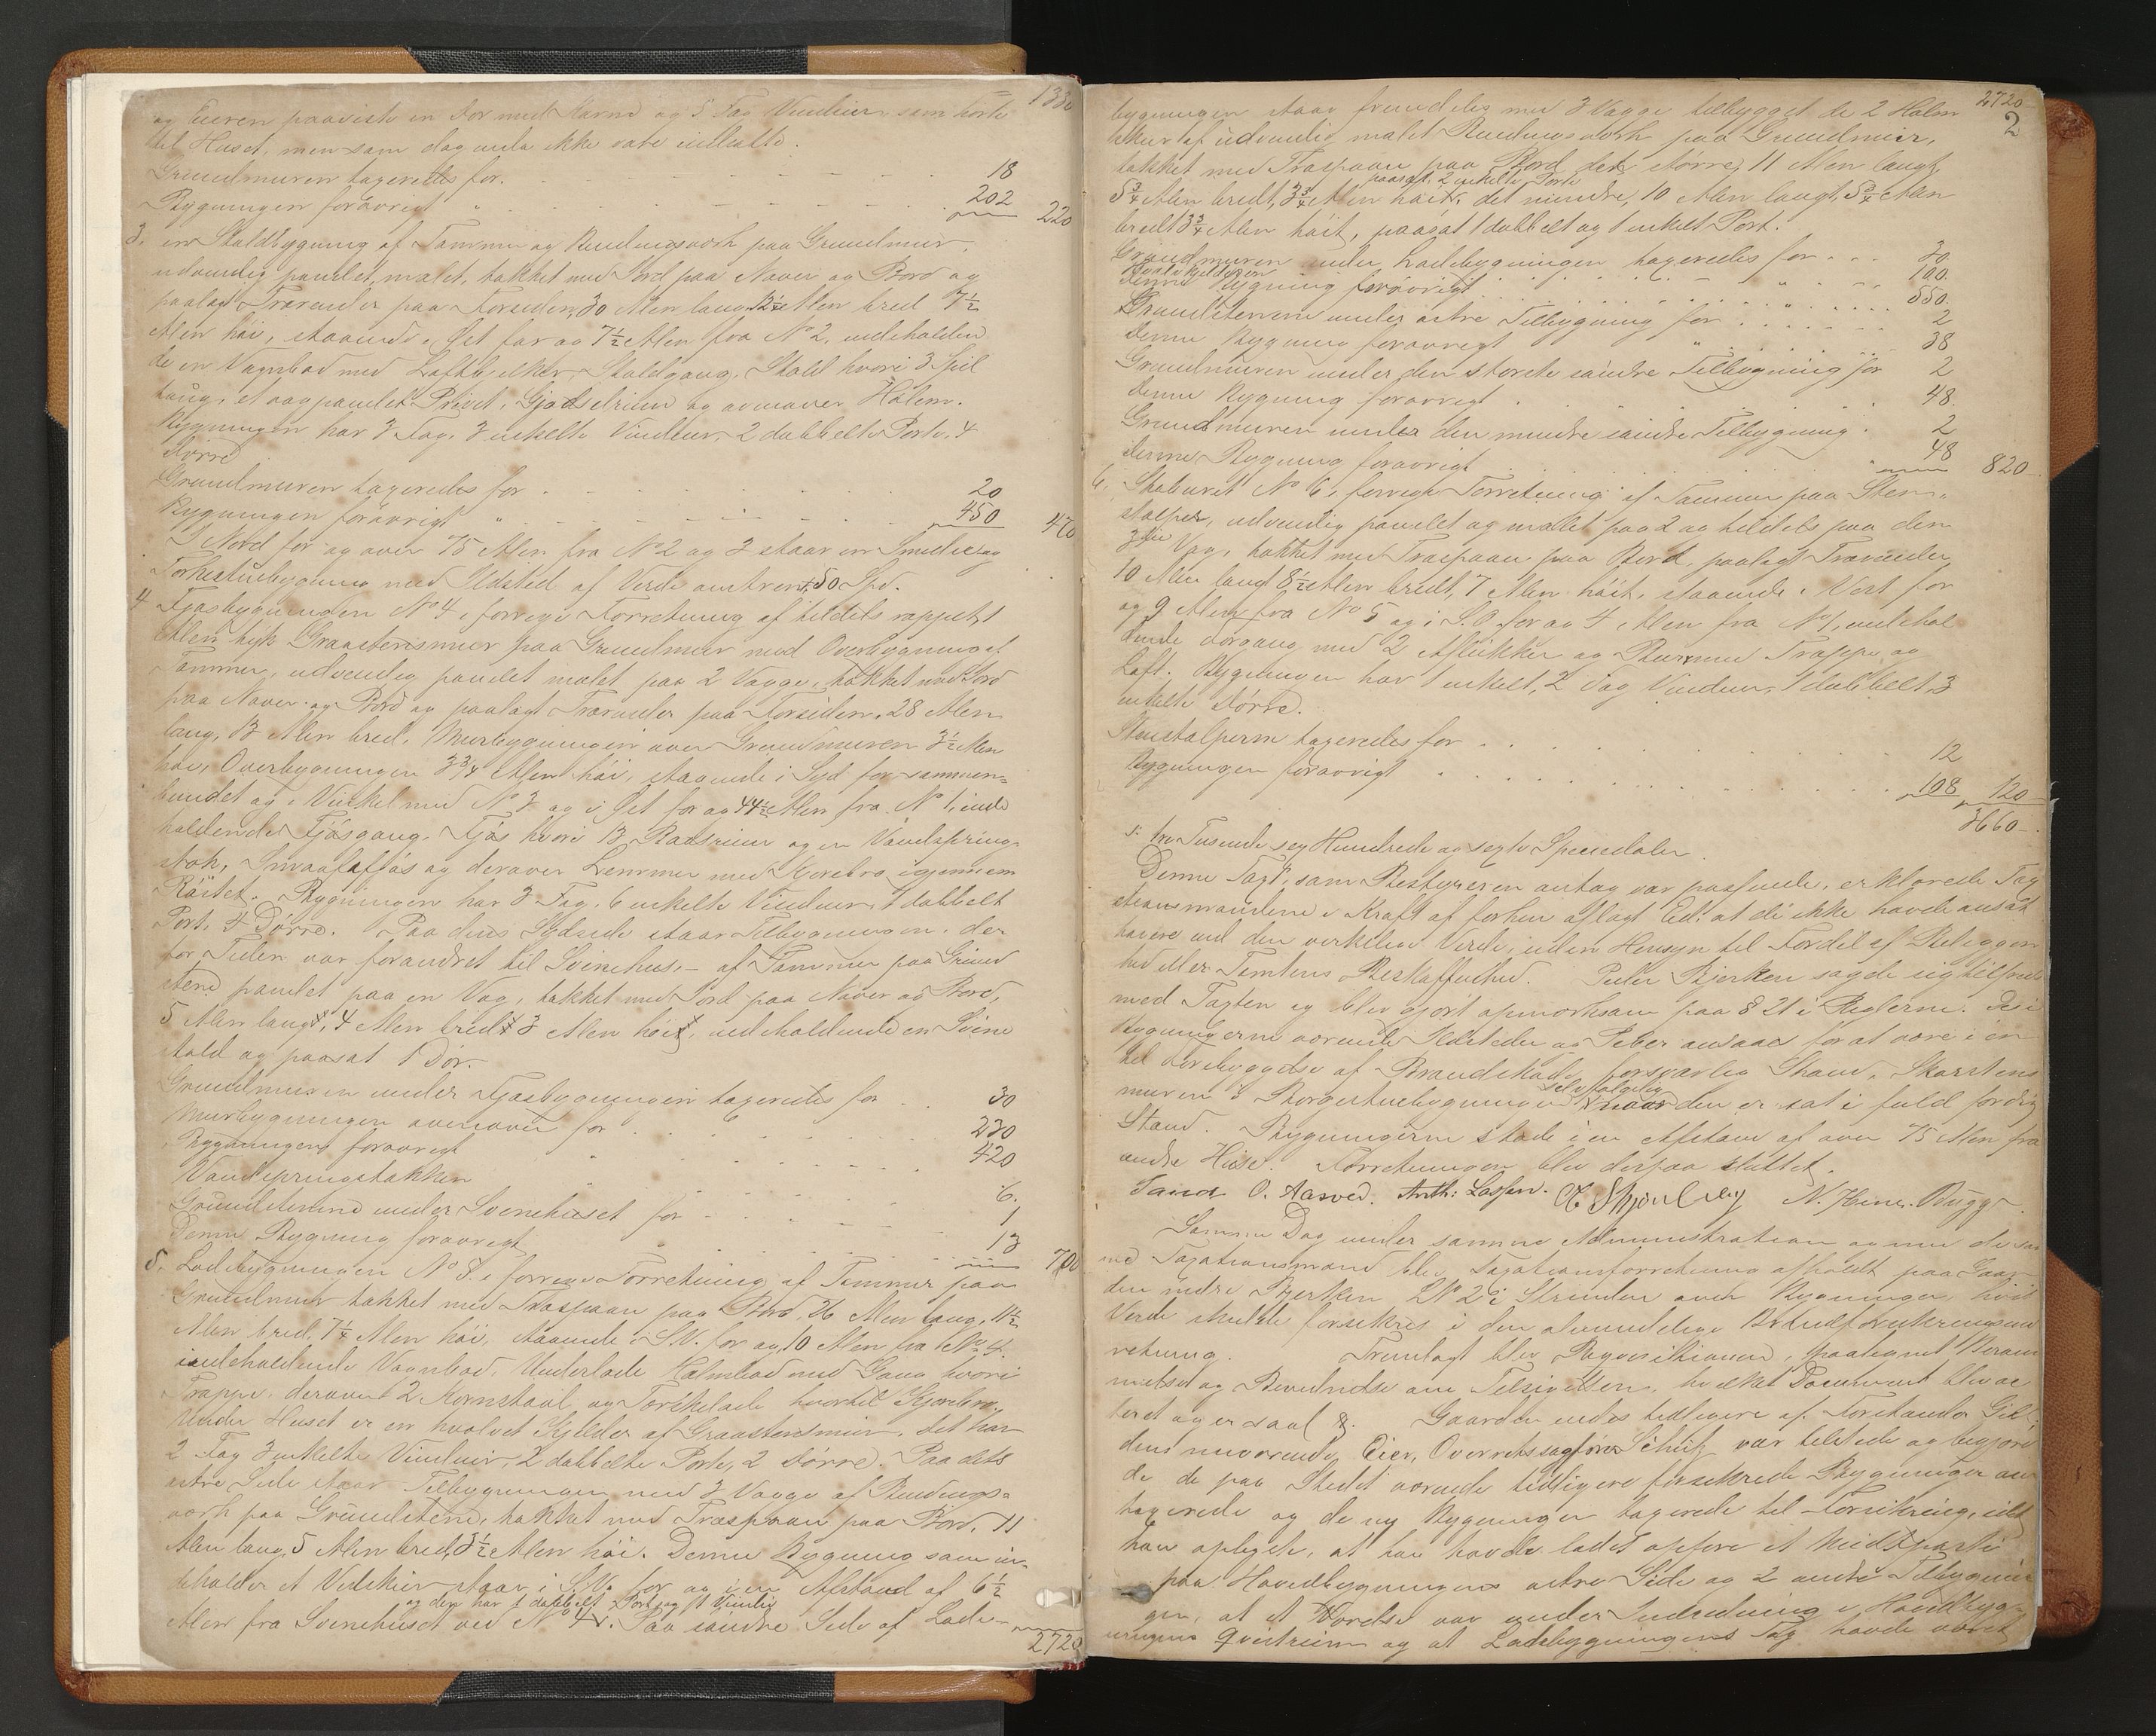 1330
og Eieren paaviste en Dør med Karme og 5 Fag Vinduer som hørte
til Huset, men som dog enda ikke vare indsatte.
Grundmuren taxeredes for 18
Bygningen forøvrigt " 202 220
3. en Staldbygning af Tømmer og Bindingsværk paa Grundmur,
udvendig panelet, malet, takket med Jord paa Næver og Bord og
paalagt Trærender paa Forsiden, 30 Alen lang, 12¼ Alen bred 7½
Alen høi, staaende i Øst for og 7½ Alen fra No 2, indeholden
de en Vognbod med Loftbjelker, Staldgang, Stald hvori 3 Spil
taug, et panelet Privet, Gjødselrum og ovenover Halm.
Bygningen har 3 Fag, 3 enkelte Vinduer, 2 dobbelte Porte, 4
Dørre
Grundmuren taxeredes for 20
Bygningen forøvrigt " 450 470
I Nord for og over 75 Alen fra No 2 og 3 staar en Smedie og
Tørkestuebygning med Ildsted af Værdi omtrent 50 Spd.
4 Fjøsbygningen No 4 i forrige Forretning af tildels rappet, 1
Alen tyk Graastensmur paa Grundmur med Overbygning af
Tømmer, udvendig panelet malet paa 2 Vægge, takket med Jord
paa Næver og Bord og paalagt Trærender paa Forsiden, 28 Alen
lang, 13 Alen bred, Murbygningen over Grundmuren 3½ Alen
høi, Overbygningen 3¾ Alen høi, staaende i Syd for sammen-
bundet og i Vinkel med No 3 og i Øst for og 44½ Alen fra No 1, inde
holdende Fjøsgang, Fjøs hvori 13 Baasrum og en Vandspring-
stok, Smaafæfjøs og derover Lemmer med Kjørebro igjennem
Røstet. Bygningen har 3 Fag, 6 enkelte Vinduer, 1 dobbelt
Port, 4 Dørre. Paa dens Sydside staar Tilbygningen, der
for Tiden var forandret til Svinehus, – af Tømmer paa Grund
stene panelet paa en Væg, takket med Jord paa Næver og Bord,
5 Alen lang, 4 Alen bred, 3 Alen høi, indeholdende en Svine
stald og paasat 1 Dør.
Grundmuren under Fjøsbygningen taxeredes for 30
Murbygningen ovenover for 230
Bygningen forøvrigt " 420
Vandspringstokken " 6.
Grundstenene under Svinehuset for 1
Denne Bygning forøvrigt 13 700
5. Ladebygningen No 8 i forrige Forretning af Tømmer paa
Grundmur takket med Træspaan paa Bord, 36 Alen lang, 11½
Alen bred, 7¼ Alen høi, staaende i S.V. for og 10 Alen fra No 4.
indeholdende Vognbod, Underlade Halmlad med Gang hvori
Trappe, derover 2 Kornstaal og Tærskelade hvortil Kjørebro.
Under Huset er en hvælvet Kjelder af Graastensmur, det har
2 Fag 3 enkelte Vinduer, 2 dobbelte Porte, 2 Dørre. Paa dets
østre Side staar Tilbygningen med 3 Vægge af Bindings-
værk paa Grundstene, takket med Træspaan paa Bord, 11
Alen lang, 5 Alen bred, 3½ Alen høi. Denne Bygning som in-
deholder et Vedskur staar i S.V. for og i en Afstand af 6½
og den har 1 dobbelt Port og 1 Vindu
Alen fra Svinehuset ved No 4. Paa søndre Side af Lade-
2720
2720
2
bygningen staar fremdeles med 3 Vægge tilbygget de 2 Halm
skur af udvendig malet Bindingsværk paa Grundmur,
takket med Træspaan paa Bord det større, 11 Alen langt,
paasat 2 enkelte Porte
5¾ Alen bredt, 3¾ Alen høit, det mindre, 10 Alen langt, 5¾ Alen
bredt 3¾ Alen høit, paasat 1 dobbelt og 1 enkelt Port.
Grundmuren under Ladebygningen taxeredes for 30.
Hvælvkjelderen 100.
denne Bygning forøvrigt 550.
Grundstenene under østre Tilbygning for 2
Denne Bygning forøvrigt " 38
Grundmuren under den største søndre Tilbygning for 2
denne Bygning forøvrigt 48.
Grundmuren under den mindre søndre Tilbygning 2
denne Bygning forøvrigt 48 820
6. Stabburet No 6 i forrige Forretning af Tømmer paa Sten-
stolper, udvendig panelet og malet paa 2 og tildels paa den
3die Væg, takket med Træspaan paa Bord, paalagt Trærender
10 Alen langt 8½ Alen bredt, 7 Alen høit, staaende i Vest for
og 9 Alen fra No 5 og i S.O. for og 4 Alen fra No 1, indehol
dende Forgang med 2 Aflukker og Burrum Trappe og
Loft. Bygningen har 1 enkelt, 2 Fag Vinduer, 1 dobbelt, 3
enkelte Dørre.
Stenstolperne taxeredes for 12
Bygningen forøvrigt " 108 120
3660
s: tre Tusinde sex Hundrede og sexti Speciedaler
Denne Taxt, som Bestyreren antog var passende, erklærede Tax
ationsmændene i Kraft af forhen aflagt Ed, at de ikke havde ansat
høiere end den virkelige Værdi, uden Hensyn til Fordel af Beliggen
hed eller Tomtens Beskaffenhed. Peder Bjerken sagde sig tilfreds
med Taxten og blev gjort opmærksom paa § 21 i Reglerne. De i
Bygningerne værende Ildsteder og Piber ansaaes for at være i en
til Forebyggelse af Brandskade forsvarlig Stand, Skorstens
selvfølgelig
muren i Borgerstuebygningen naar den er sat i fuld færdig
Stand. Bygningerne stode i en Afstand af over 75 Alen fra
andre Huse. Forretningen blev derpaa sluttet.
O. Aasved. Anth: Lassen. N. Henr. Bugge.
Samme Dag under samme Administration og med de sam
me Taxationsmænd blev Taxationsforretning afholdt paa Gaar
den nedre Bjerken L No 2 i Strinden over Bygninger, hvis
Værdi skulde forsikres i den almindelige Brandforsikringsind
retning. Fremlagt blev Reqvisitionen, paategnet Beram
melse og Bevidnelse om Tilsigelsen, hvilket Document blev ac
teret og er saal. Gaarden eiedes tidligere af
dens nuværende Eier, Overretssagfører Schütz var tilstede og begjær
de de paa Stedet værende tidligere forsikrede Bygninger om
taxerede og de ny Bygninger taxerede til Forsikring, idet
han oplyste, at han havde ladet opføre et Midtparti
paa Hovedbygningens østre Side og 2 andre Tilbygnin
ger, at et Værelse var under Indredning i Hovedbyg-
ningens Qvistrum og at Ladebygningens Tag havde været